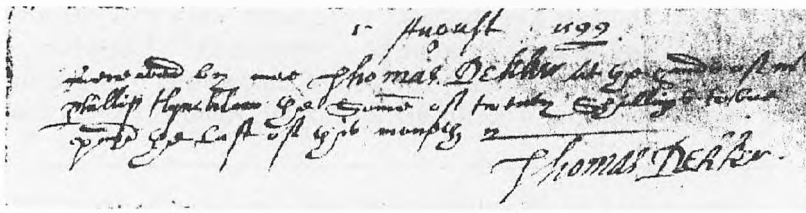 1 August 1599
Receaued by mee Thomas Dekker at the hands of mr
Phillip Hynchlow the Some of twenty Shillings to bee
payd the last of this month
Thomas Dekker.